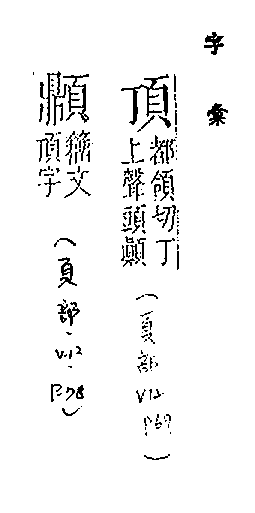 字彙
頂 都領切丁
上聲頭顚
(頁部 V12 P67)
籒文
頂字
(頁部、V.12、P.78)